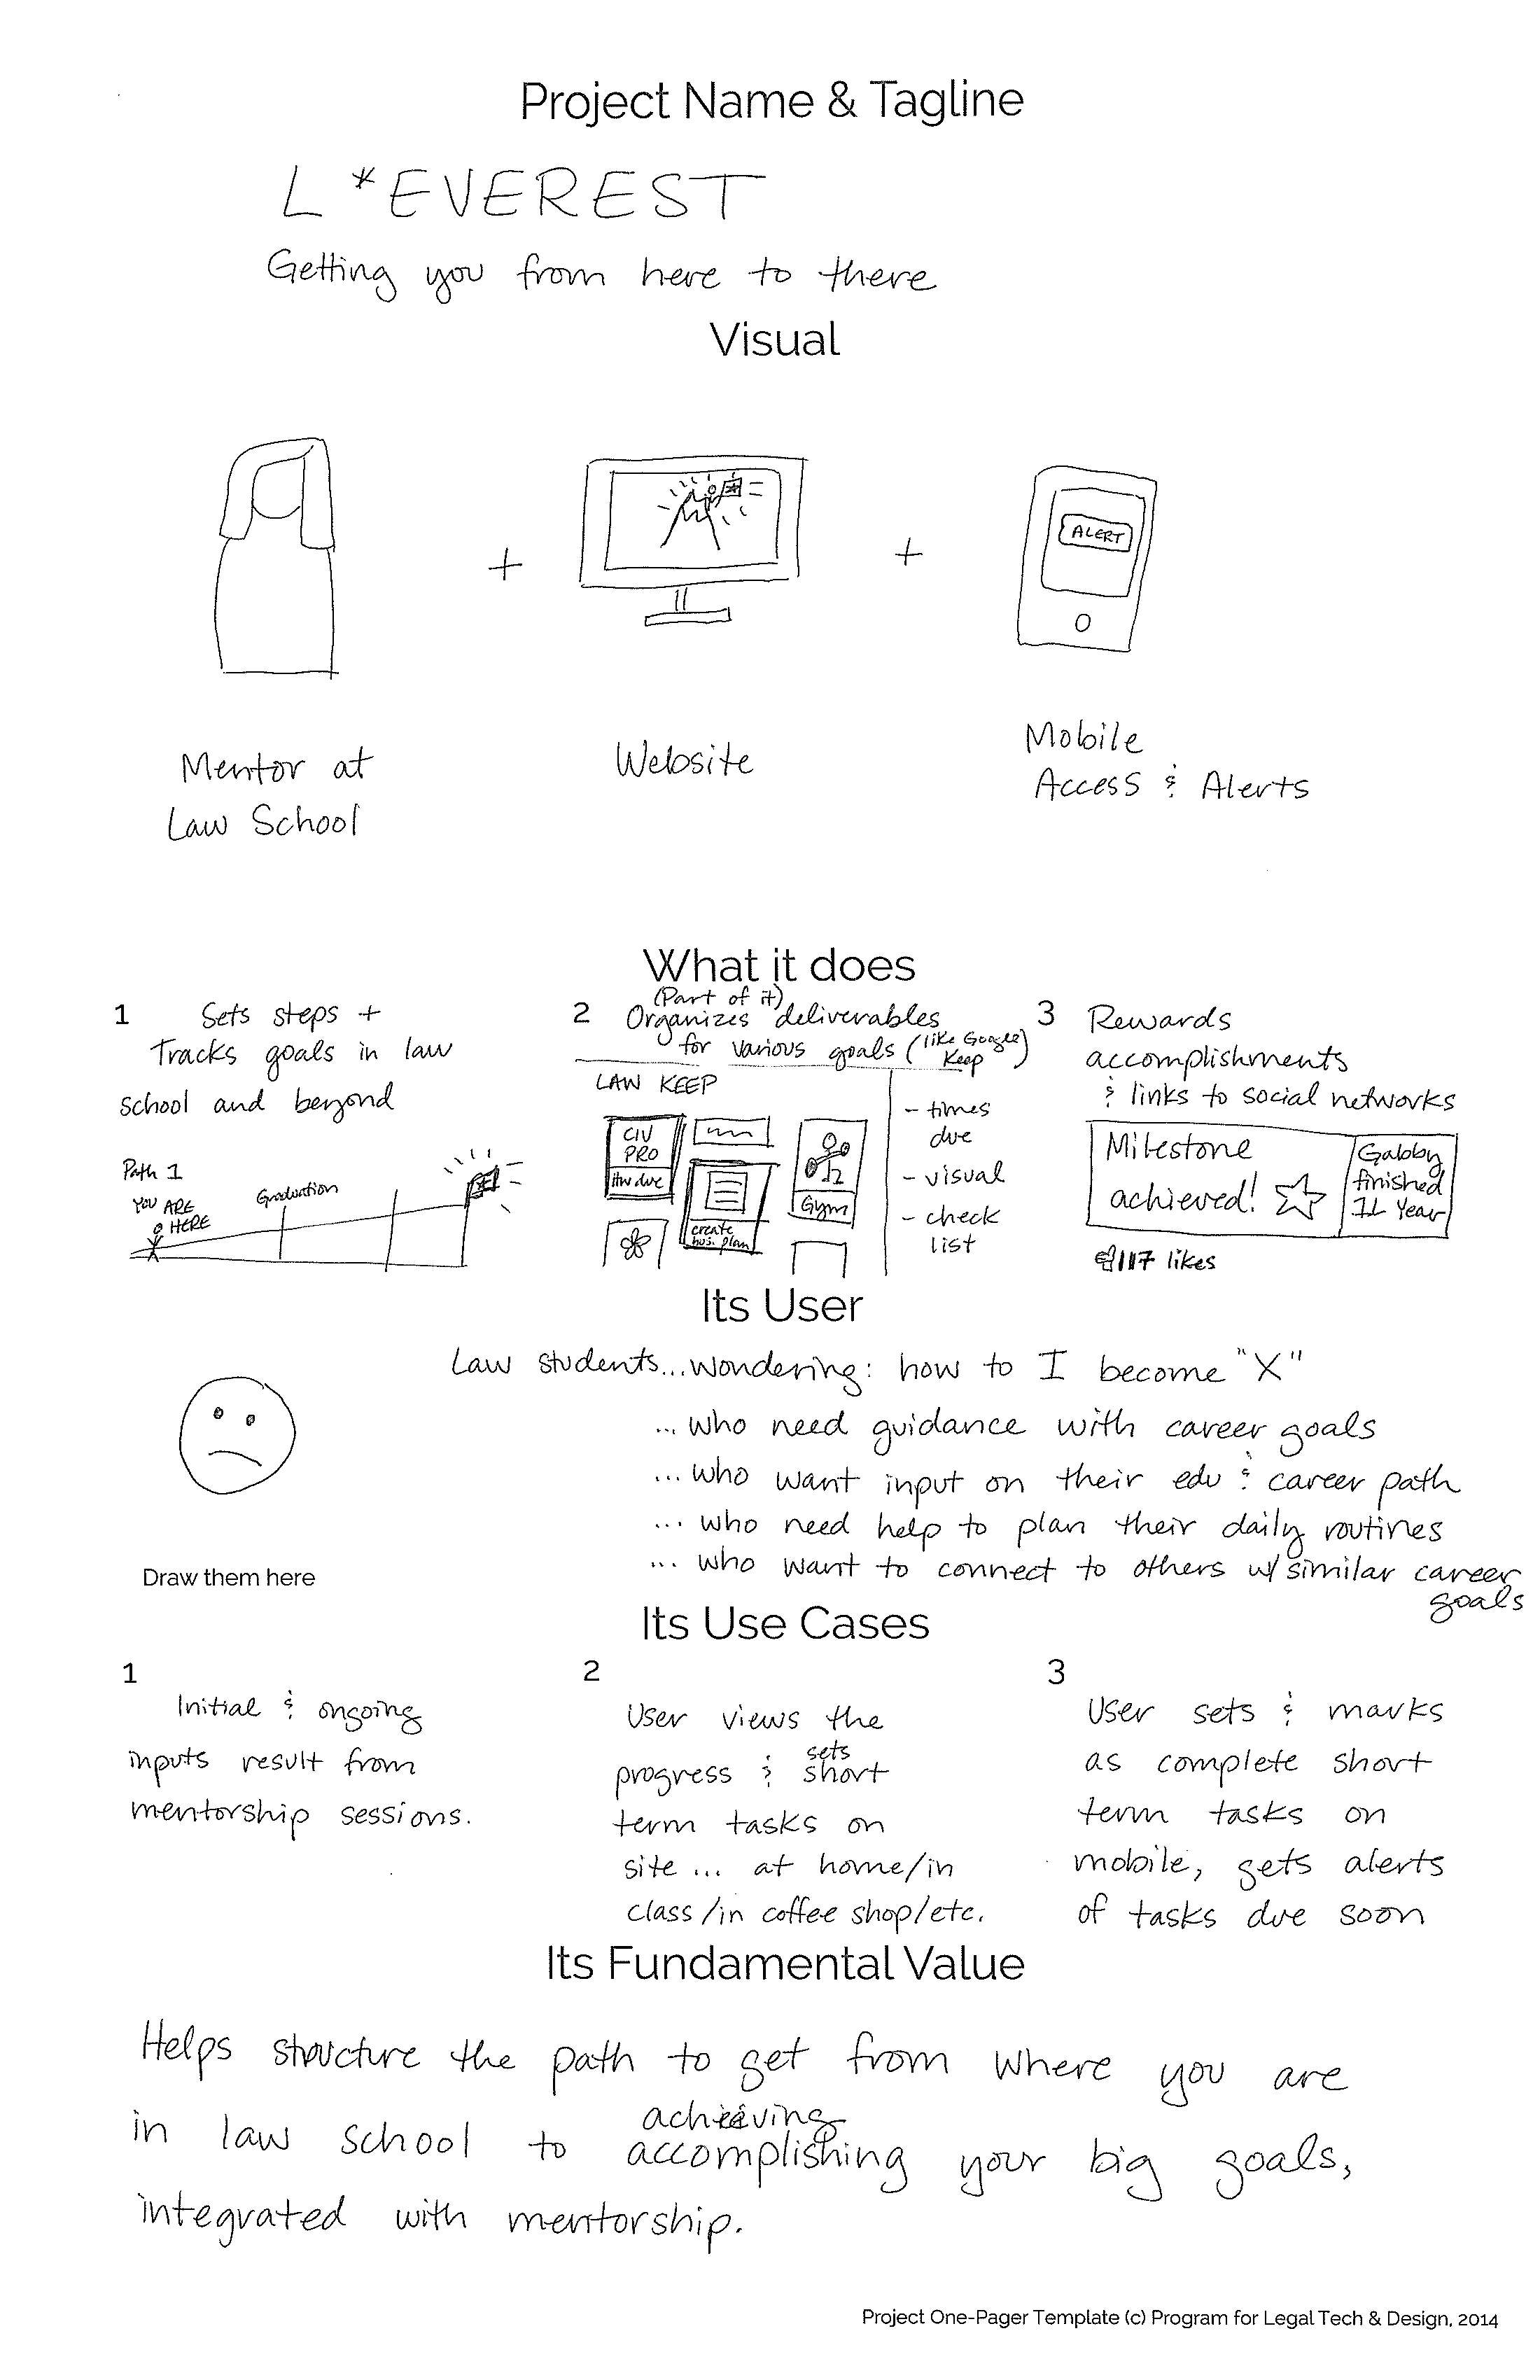 Project Name & Tagline
L*EVEREST
Getting you from here to there
Visual
ALERT
+
+
Mentor at
Law School
Website
Mobile
Access & Alerts
What it does
1
Sets steps +
Tracks goals in law
school and beyond
Path 1
YOU ARE
HERE
Graduation
2
(Part of it)
Organizes deliverables
for various goals (like Google
Keep)
LAW KEEP
CIV
PRO
HW due
create
busi. plan
Gym
- times
due
- visual
- check
list
3
Rewards
accomplishments
& links to social networks
Milestone
achieved!
Gabby
finished
1L Year
117 likes
Its User
Law students...wondering: how to I become "X"
... who need guidance with career goals
... who want input on their edu & career path
... who need help to plan their daily routines
... who want to connect to others w/ similar career
goals
Draw them here
Its Use Cases
1
Initial & ongoing
inputs result from
mentorship sessions.
2
User views the
progress & sets short
term tasks on
site ... at home/in
class/in coffee shop/etc.
3
User sets & marks
as complete short
term tasks on
mobile, gets alerts
of tasks due soon
Its Fundamental Value
Helps structure the path to get from where you are
achieving
in law school to accomplishing your big goals,
integrated with mentorship.
Project One-Pager Template (c) Program for Legal Tech & Design, 2014